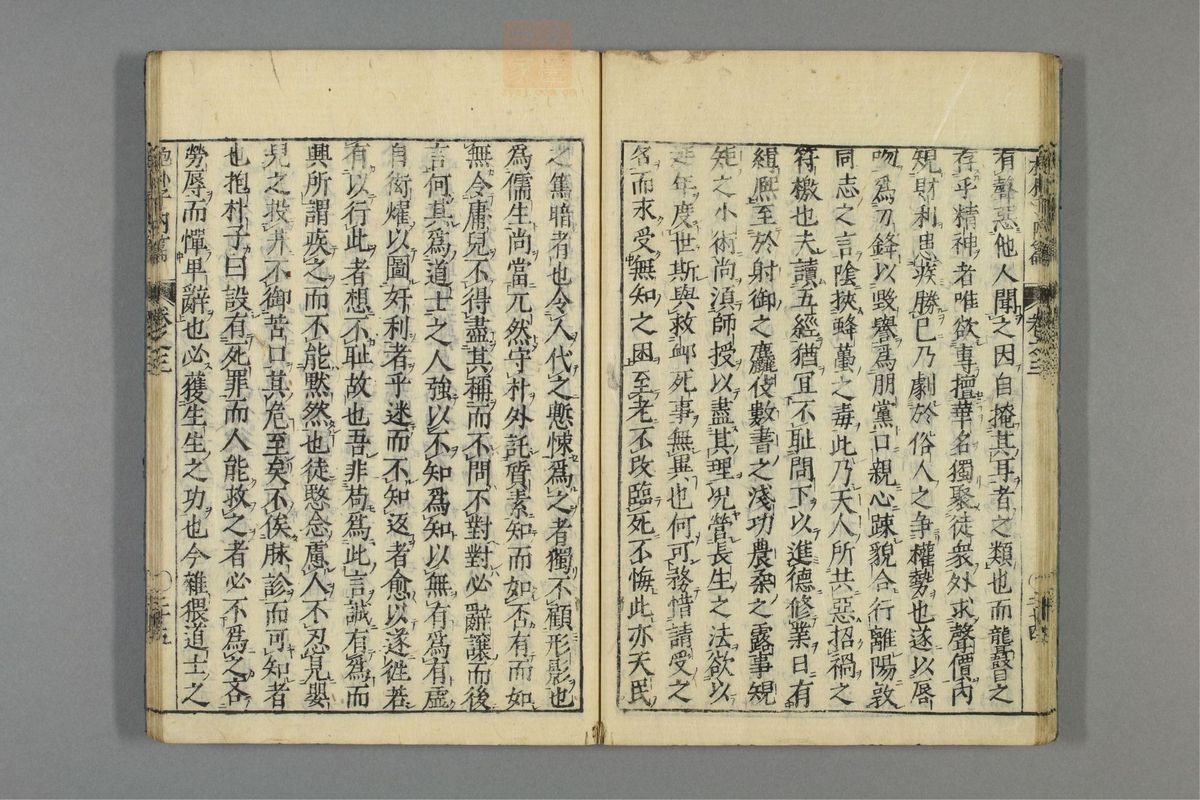 有聲惡他人聞之因自掩其耳者之類也而聾瞽之
存乎精神者唯欲專擅華名獨聚徒衆外求聲價内
規財利患疾勝己乃劇於俗人之争權勢也遂以脣
吻爲刃鋒以毀譽爲朋黨口親心踈貌合行離陽敦
同志之言隂挾蜂蠆之毒此乃天人所共惡招禍之
符檄也夫讀五經猶冝不耻問下以進德修業日有
緝熈至於射御之麤伎數書之淺功農桒之露事規
矩之小術尚湏師授以盡其理况營長生之法欲以
延年度世斯與救䘏死事無異也何可務惜請受之
名而求受無知之困至老不改臨死不悔此亦天民
之篤暗者也令人代之慙悚爲之者獨不顧形影也
爲儒生尚當兀然守朴外託質素知而如否有而如
無令庸兒不得盡其稱而不問不對對必辭讓而後
言何其爲道士之人強以不知爲知以無有爲有虚
自衒燿以圖奸利者乎迷而不知返者愈以遂徃若
有以行此者想不耻故也吾非苟爲此言誠有爲而
興所謂疾之而不能黙然也徒愍念愚人不忍見嬰
兒之投井不御苦口其危至矣不俟脉診而可知者
也抱朴子曰設有死罪而人能救之者必不爲之吝
勞辱而憚卑辭也必獲生生之功也今雜猥道士之
抱朴子内篇
卷之三
二十五
卷之三
二十四